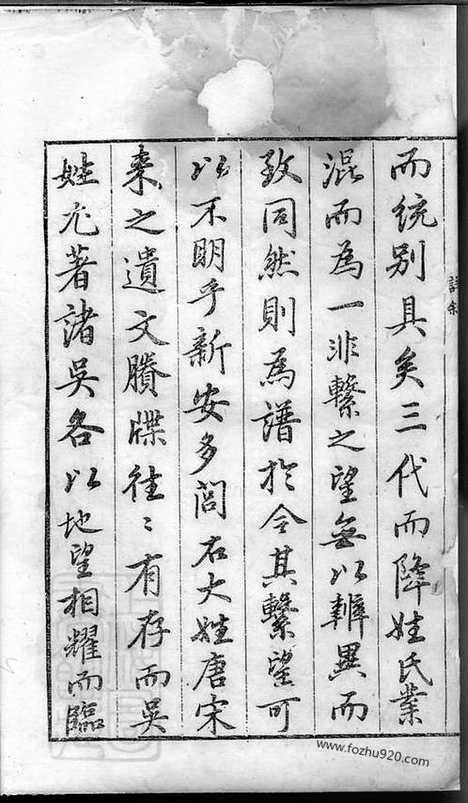 而統别具矣三代而降姓氏業
混而為一非繫之望無以辨異而
致同然則為譜於令其繫望可
以不明乎新安多閥右大姓唐宋
来之遺文賸牒往〻有存而吳
姓尤著諸吳各以地望相耀而臨
www.fozhu920.com